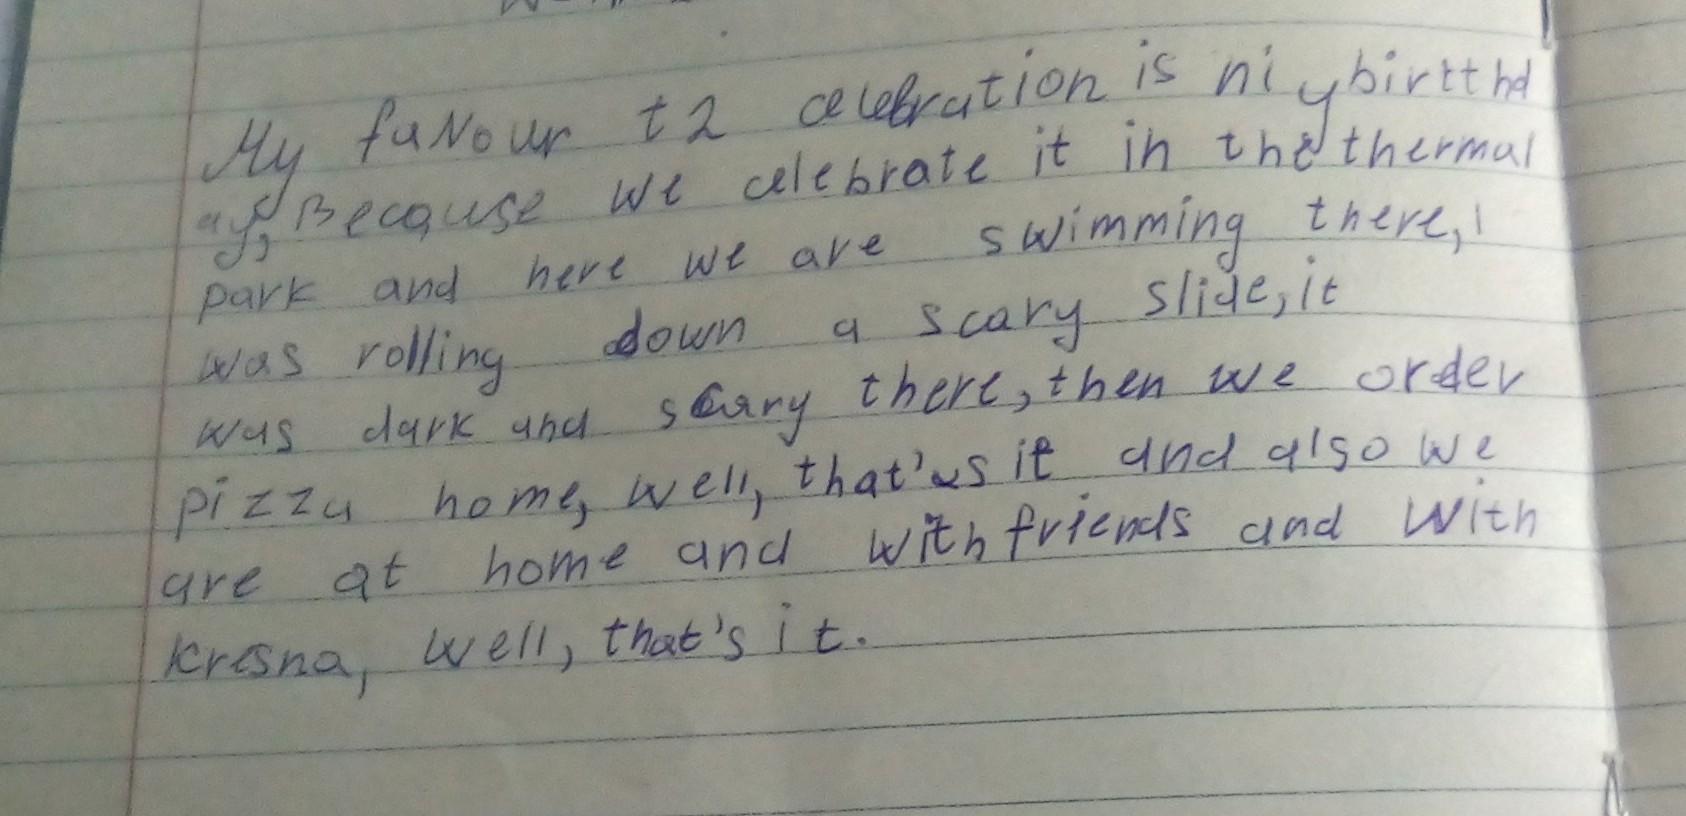 My favour t2 celebration is ni ybirtthd
ay, Because we celebrate it in the thermal
park and here we are swimming there, I
was rolling down a scary slide, it
was dark and scary there, then we order
pizza home, well, that's it and also we
are at home and with friends and with
kresna, well, that's it.